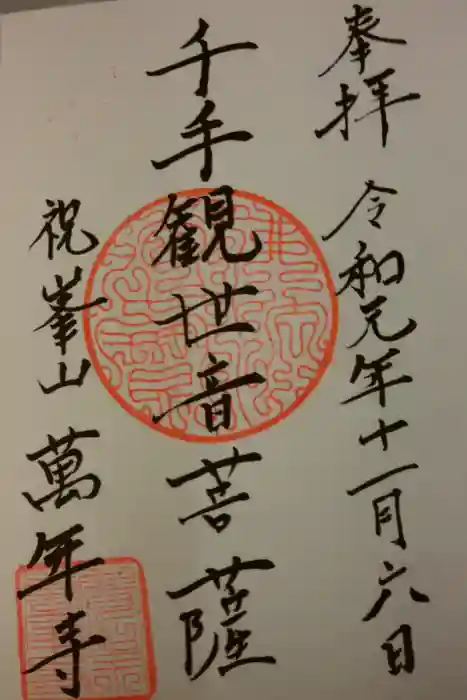 奉拝 令和元年十一月六日
千手観世音菩薩
祝峯山 萬年寺